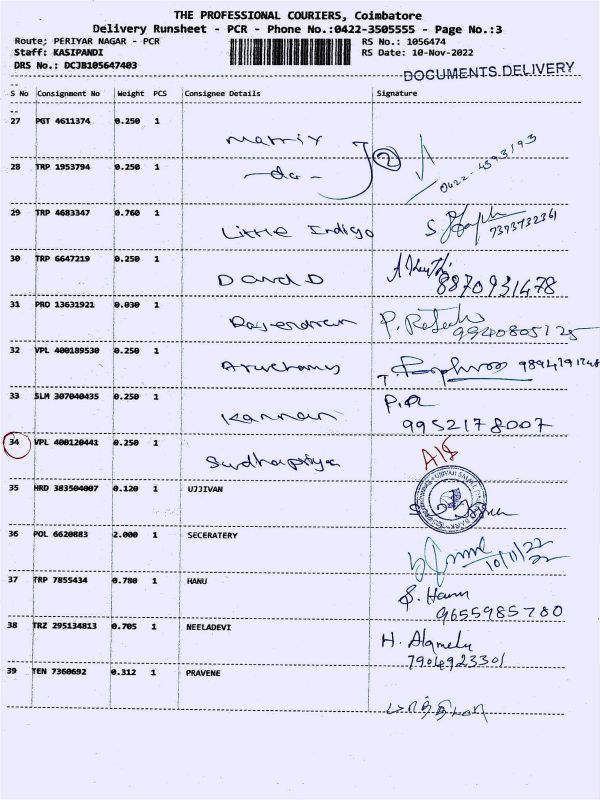 THE PROFESSIONAL COURIERS, Coimbatore
Delivery Runsheet - PCR - Phone No.:0422-3505555 - Page No.:3
Route; PERIYAR NAGAR - PCR RS No.: 1056474
Staff: KASIPANDI RS Date: 10-Nov-2022
DRS No.: DCJB105647403
DOCUMENTS DELIVERY
S No Consignment No Weight PCS Consignee Details Signature
27 PGT 4611374 0.250 1 Matrix
28 TRP 1953794 0.250 1 -do- 2
29 TRP 4683347 0.760 1 Little Indigo 7373732361
30 TRP 6647219 0.250 1 David D 8870931478
31 PRO 13631921 0.030 1 Rajendran 9940805125
32 VPL 400189530 0.250 1 Aruchamy
33 SLM 307040435 0.250 1 Kannan 9952178007
34 VPL 400120441 0.250 1 Sudhapriya
35 HRD 383504007 0.120 1 UJJIVAN
36 POL 6620883 2.000 1 SECERATERY 10/11/22
37 TRP 7855434 0.780 1 HANU 9655985780
38 TRZ 295134813 0.705 1 NEELADEVI H. Alamelu 7904923301
39 TEN 7360692 0.312 1 PRAVENE